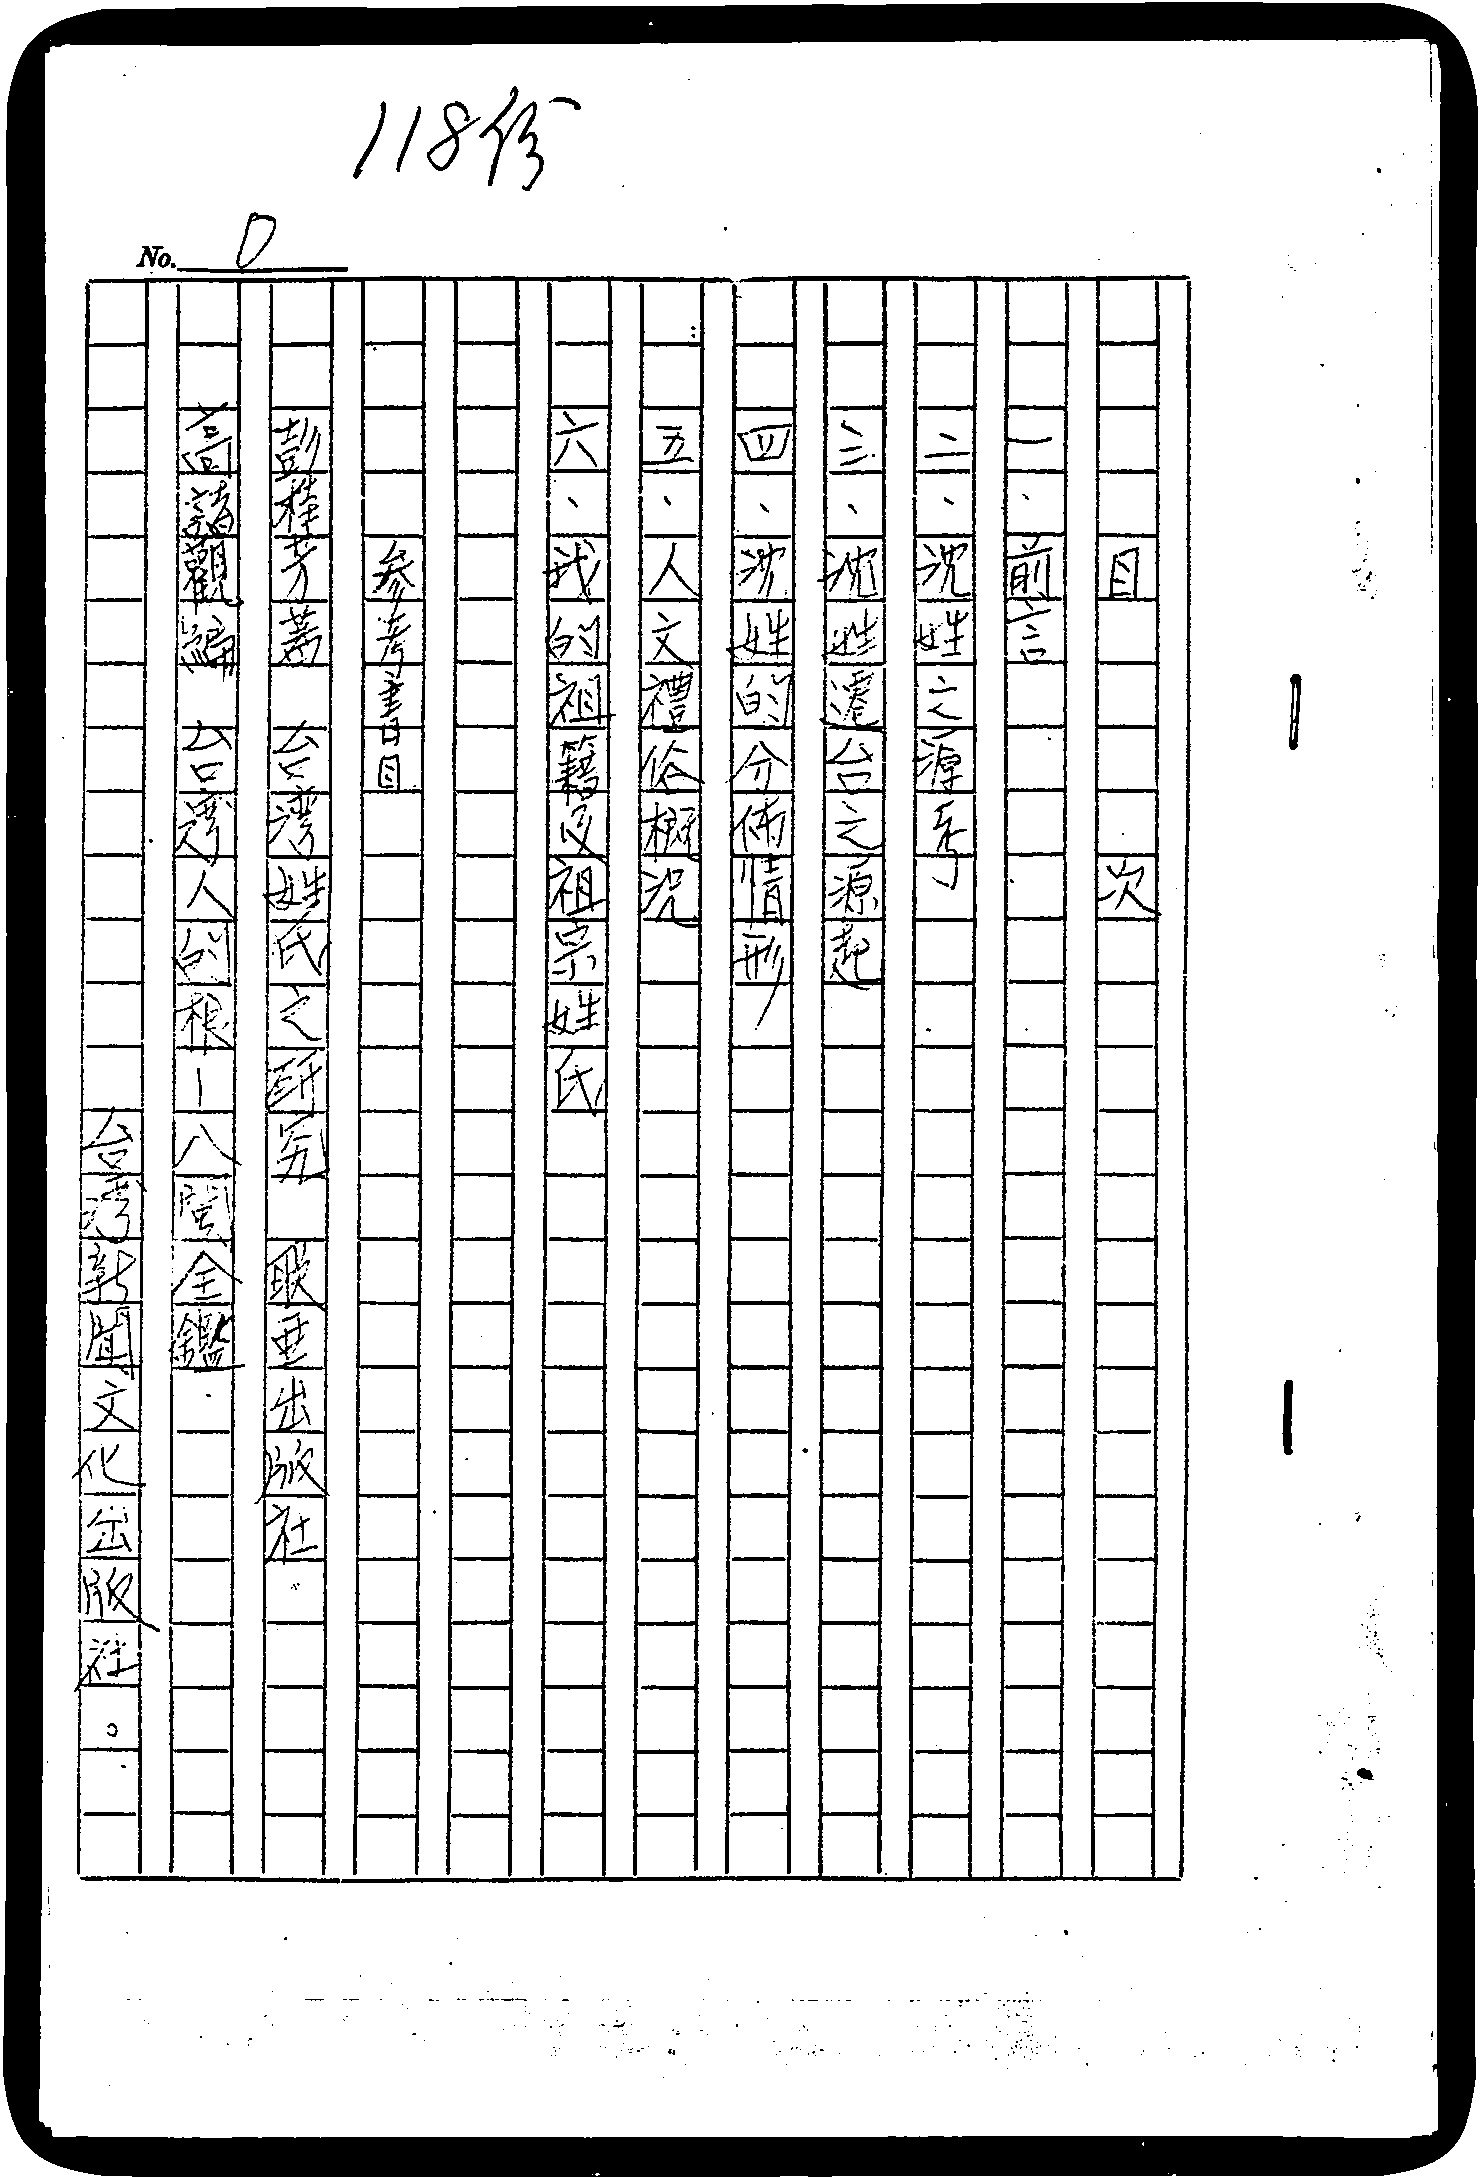 118份
No. 0
目次
一、前言
二、沈姓之源系
三、沈姓遷台之源起
四、沈姓的分佈情形
五、人文禮俗概況
六、我的祖籍及祖宗姓氏
参考書目
彭桂芳著 台湾姓氏之研究 聯亜出版社。
高諸觀編 台湾人的根—八閩全鑑
台湾新聞文化出版社。